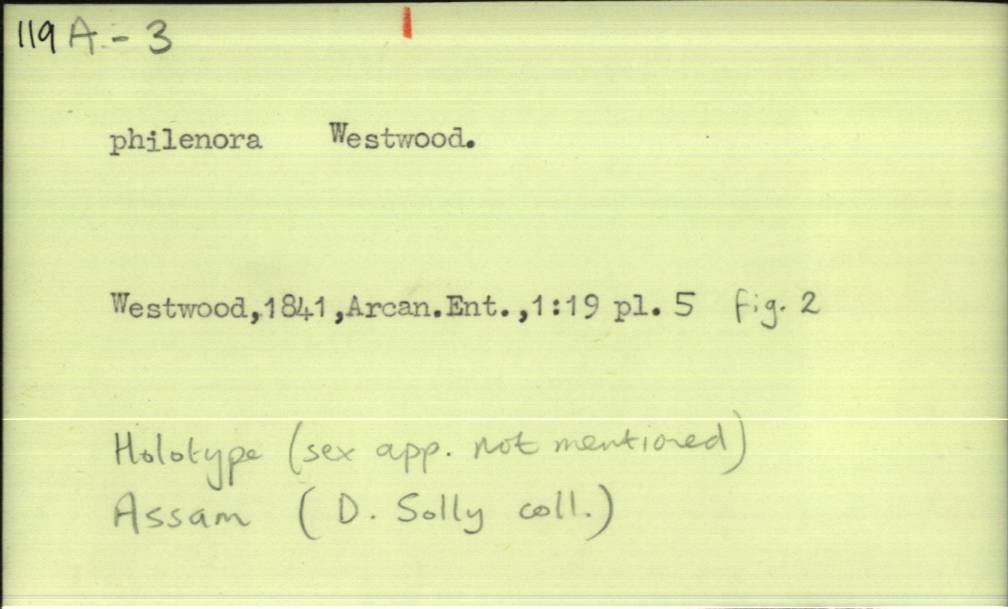 119 A - 3
philenora Westwood.
Westwood,1841,Arcan.Ent.,1:19 pl. 5 fig. 2
Holotype (sex app. not mentioned)
Assam ( D. Solly coll.)